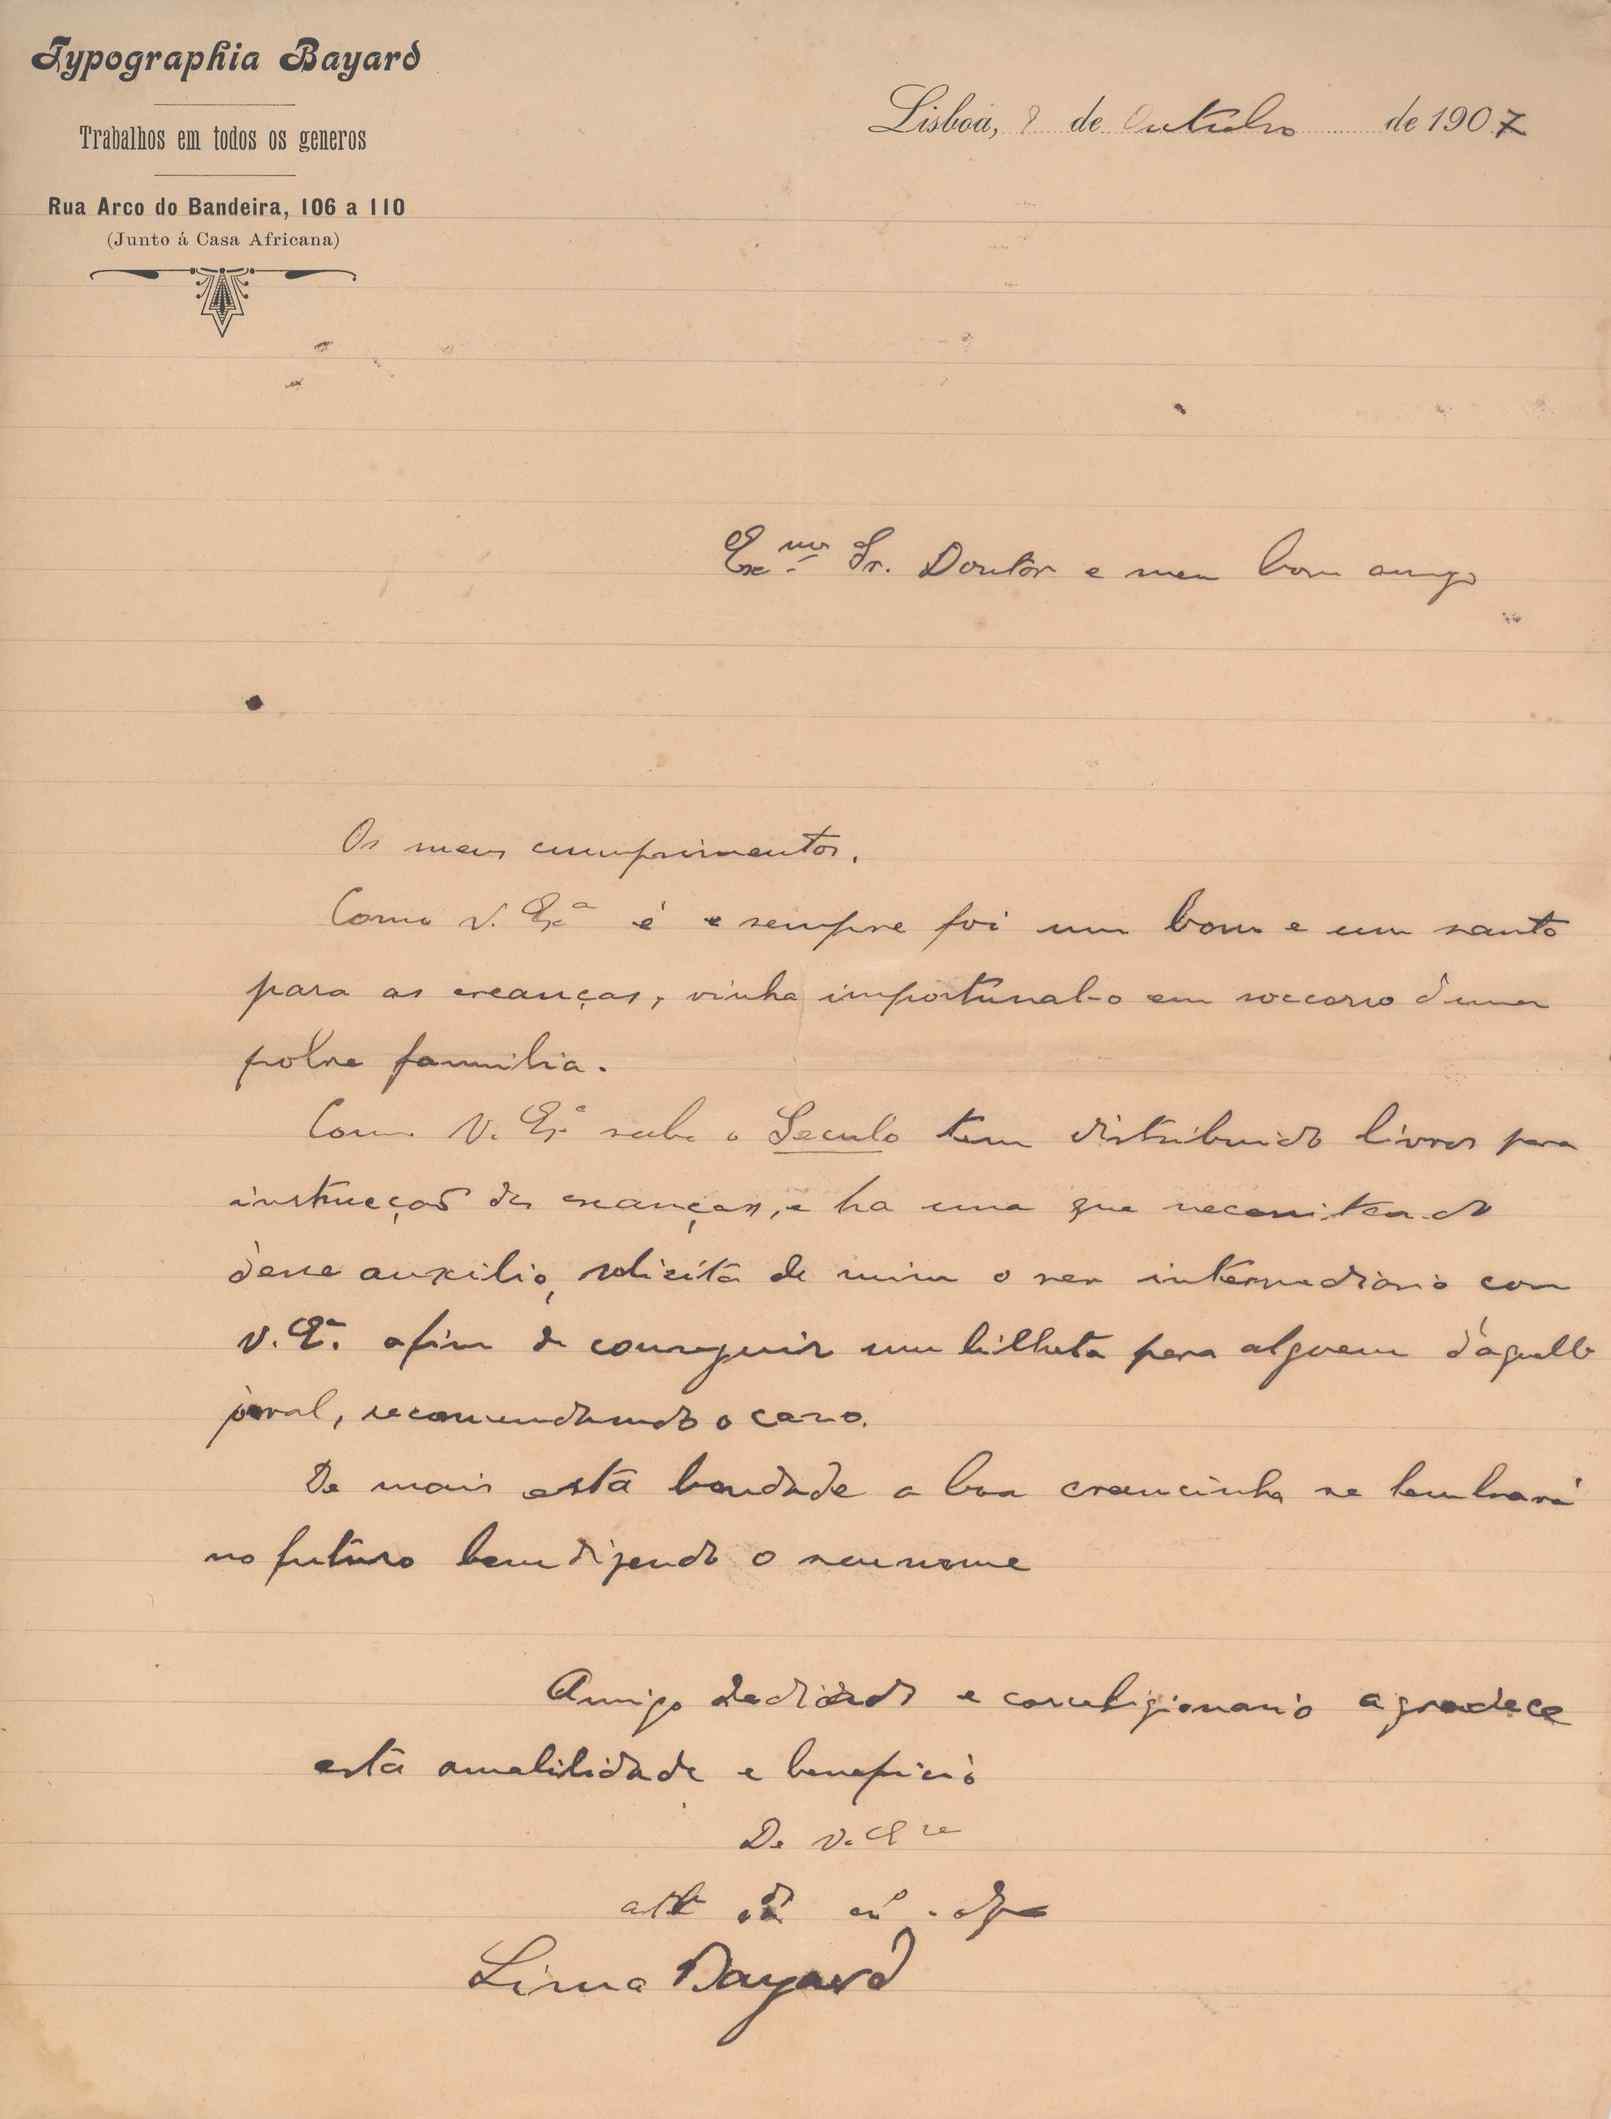 Typographia Bayard
Trabalhos em todos os generos
Rua Arco do Bandeira, 106 a 110
(Junto á Casa Africana)
Lisboa, de Outubro de 1907
Exmo Sr. Doutor e meu bom amigo
Os meus cumprimentos.
Como V. Exa é e sempre foi um bom e um santo
para as creanças, vinha importunal-o em soccorro d'uma
pobre familia.
Como V. Exa sabe o Seculo tem distribuido livros para
instrucção das creanças, e ha uma que necessitando
d'esse auxilio, solicita de mim o ser intermediario com
V. Exa. afim de conseguir um bilhete para alguem d'aquelle
jornal, recomendando o caso.
De mais esta bondade a boa creancinha se lembrará
no futuro bem dizendo o seu nome
Amigo dedicado e correligionario agradece
esta amabilidade e beneficio
De V. Exa
Lima Bayard